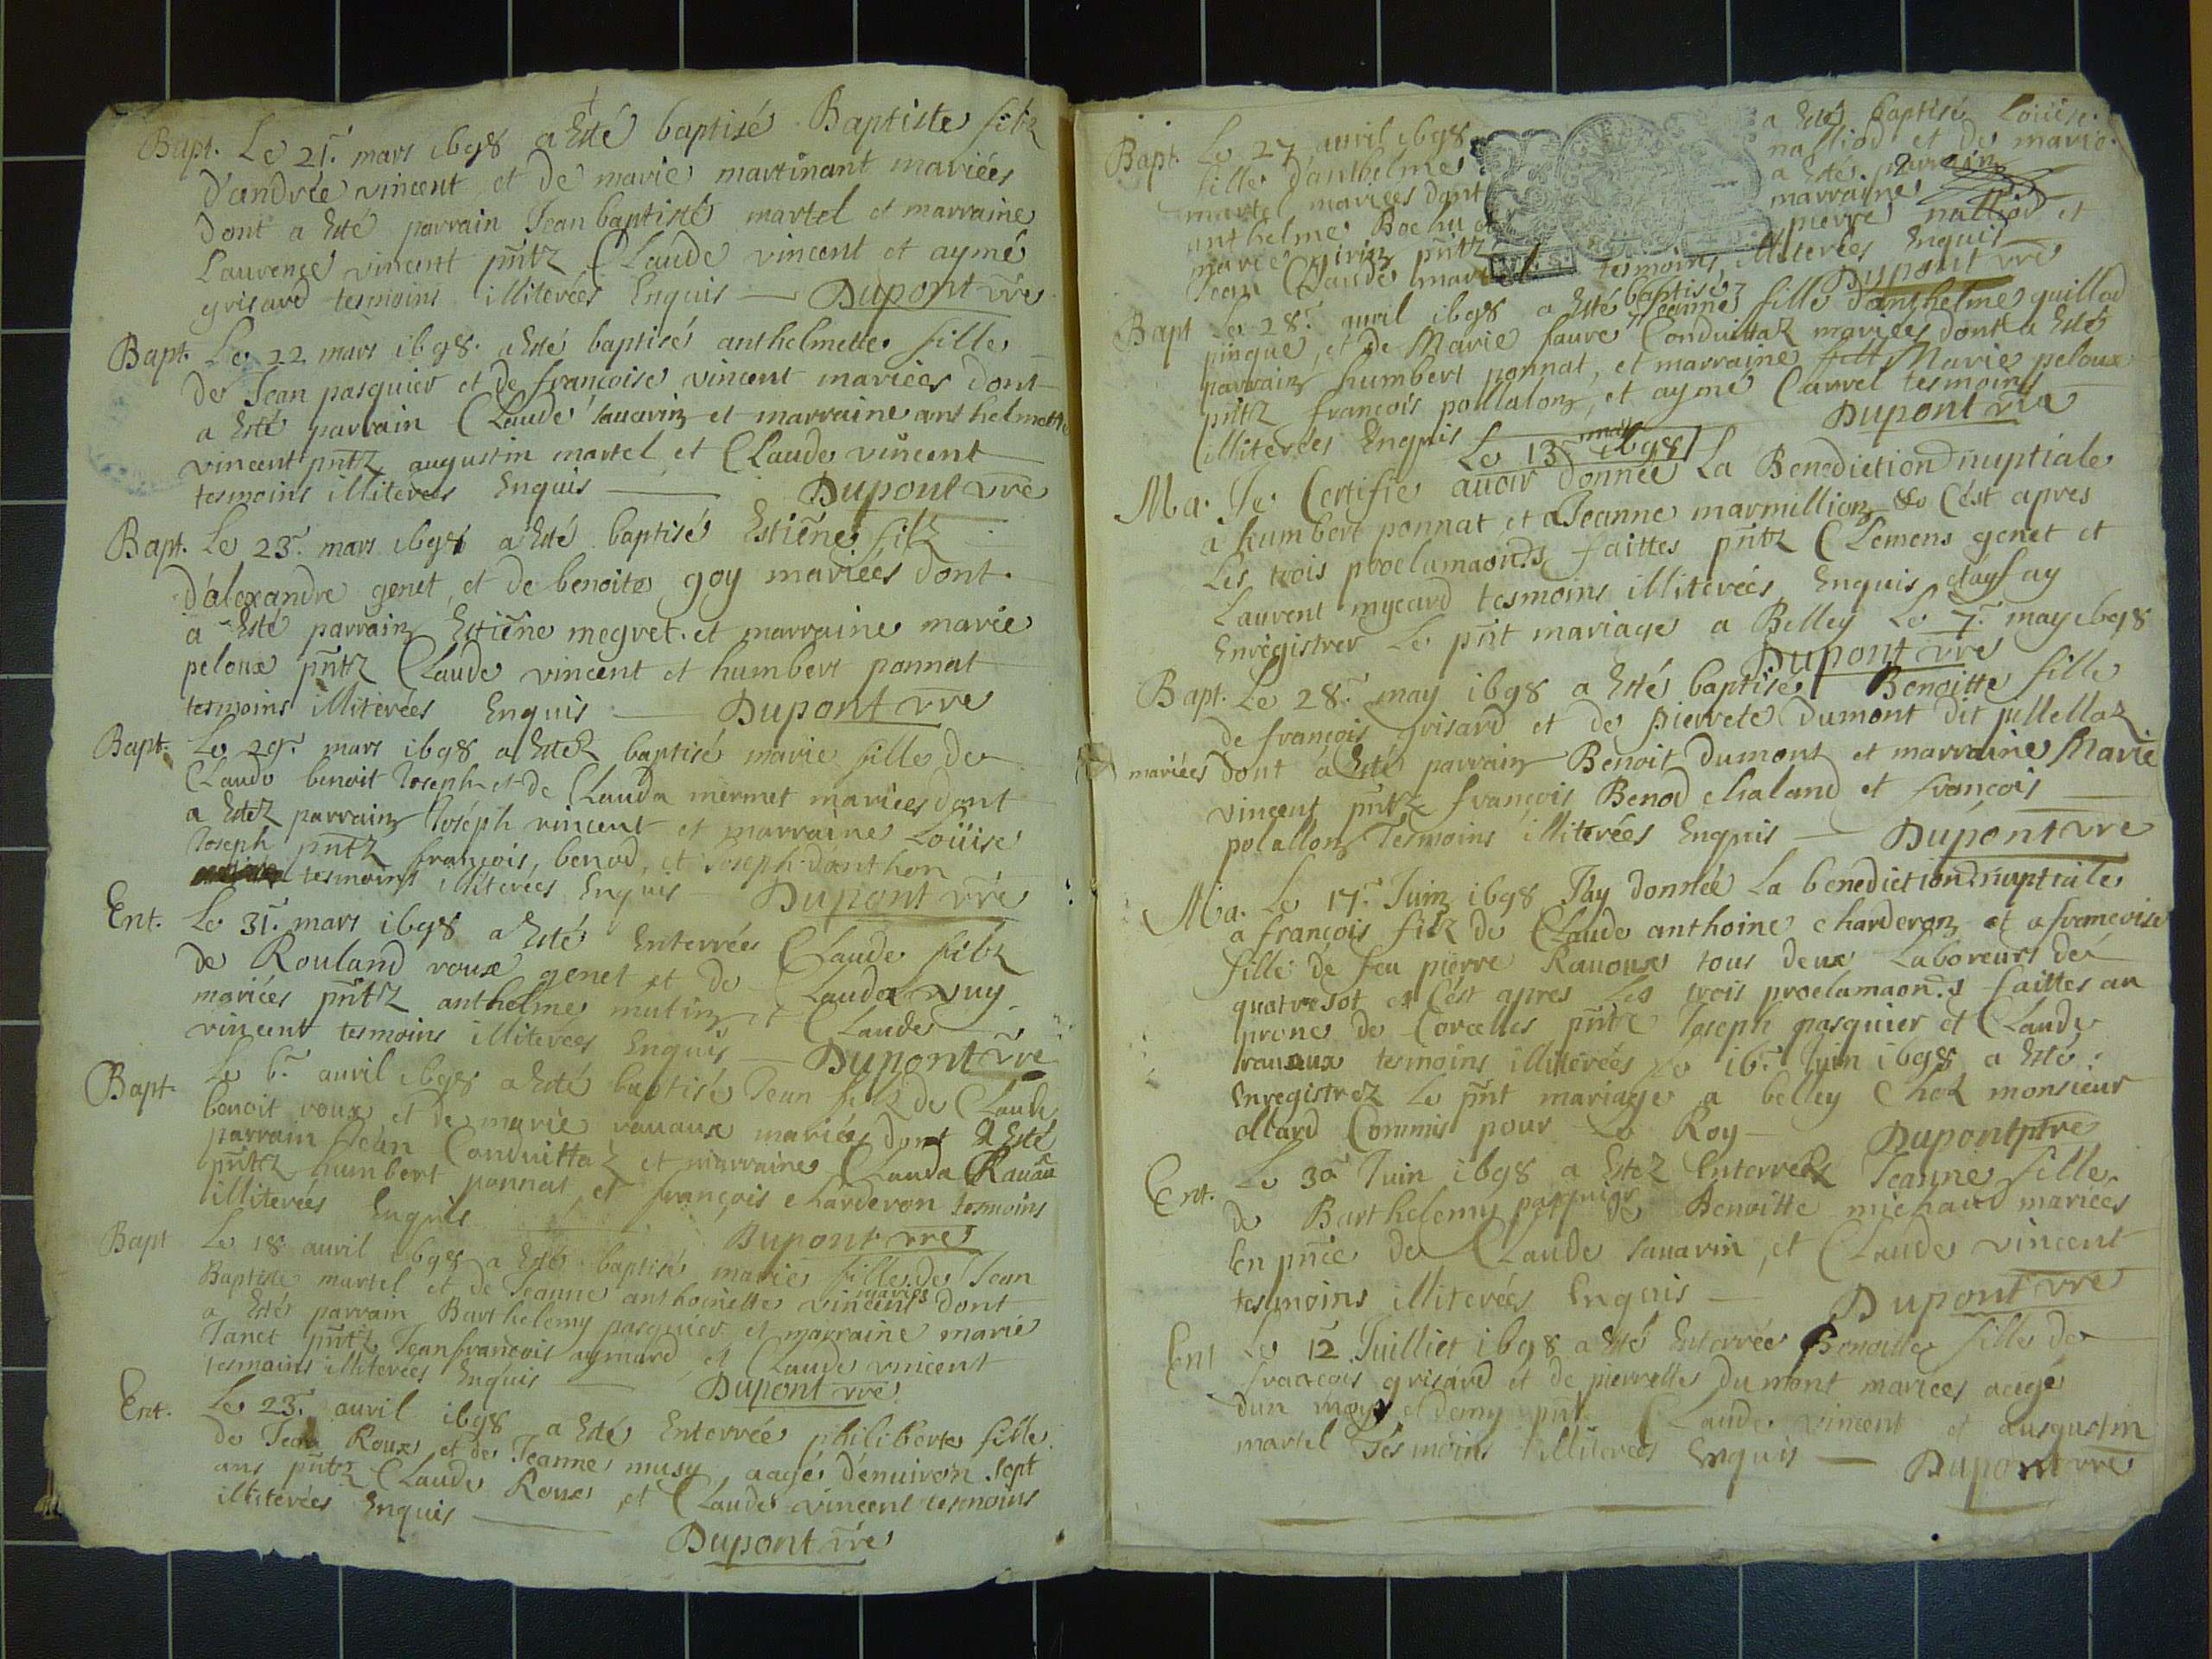 Bapt. Le 21. mars 1698 a Esté baptisé Baptiste filz
d'andrée vincent et de marie martinant mariées
dont a Esté parrain Jean baptisté martel et marraine
Laurence vincent pntz Claude vincent et aymé
grisard tesmoins illiterées Enquis — Dupont vre
Bapt. Le 22 mars 1698. a Esté baptisé anthelmette fille
de Jean pasquier et de françoise vincent mariées dont
a Esté parrain Claude sauarin et marraine anthelmette
vincent pntz augustin martel et Claude vincent
tesmoins illiterées Enquis — Dupont vre
Bapt. Le 23. mars 1698 a Esté baptisé Estiene filz
d'alexandre genet, et de benoite goy mariées dont
a Esté parrain Estiene megret et marraine marie
peloux pntz Claude vincent et humbert ponnat
tesmoins illiterées Enquis — Dupont vre
Bapt. Le 29. mars 1698 a Estez baptisé marie fille de
Claude benoit Joseph et de Clauda mermet mariées dont
a Estez parrain Joséph vincent et marraine Loüise
Joseph pntz françois, benod, et Joseph danthon
tesmoins illiterées Enquis — Dupont vre
Ent. Le 31. mars 1698 a Esté Enterrées Claude filz
de Rouland roux genet et de Clauda vuy
mariées pntz anthelme mutin et Claude
vincent tesmoins illiterées Enquis — Dupont vre
Bapt. Le 6. auril 1698 a Esté baptisé Jean filz de Claude
benoit roux et de marie rauaux mariées dont a Esté
parrain Jean Conduittaz et marraine Clauda Rauaux
pntz humbert ponnat et françois charderon tesmoins
illiterées Enquis Dupont vre
Bapt Le 18 auril 1698 a Esté baptisé marie fille de Jean
Baptiste martel et de Jeanne anthoinette vincent mariés dont
a Esté parrain Barthelemy pasquier et marraine marie
Janet pntz Jean françois aymard et Claude vincent
tesmoins illiterées Enquis — Dupont vre
Ent. Le 23. auril 1698 a Esté Enterrée philiberte fille
de Jean Roux et de Jeanne musy aagée d'enuiron sept
ans pntz Claude Roux et Claude vincent tesmoins
illiterées Enquis — Dupont vre
Bapt. Le 27 auril 1698 a Esté baptisé Loüise
fille d'anthelme nalliod et de marie
martel mariées dont a Esté parrain
anthelme Bochu et marraine
marie pntz pierre nalliod et
Jean Claude martel tesmoins illiterées Enquis
Dupont vre
Bapt Le 28. auril 1698 a Esté baptisé Jeanne fille d'anthelme guillod
pingue, et de Marie faure Conduittaz mariées dont a Esté
parrain humbert ponnat, et marraine Marie peloux
pntz françois pollalon, et aymé Carrel tesmoins
illiterées Enquis Dupont vre
Le 13 may 1698
Ma. Je Certifie auoir donnée La Benediction nuptiale
a humbert ponnat et a Jeanne marmillion & C'est apres
Les trois proclamaons faittes pntz Clemens genet et
Laurent mycard tesmoins illiterées Enquis et ay fay
Enregistrer Le pnt mariage a Belley Le 7. may 1698
Dupont vre
Bapt. Le 28. may 1698 a Esté baptisé Benoitte fille
de françois grisard et de pierrete Dumont dit pellellaz
mariées dont a Esté parrain Benoit Dumont et marraine Marie
vincent pntz françois Benod chaland et françois
polallon Tesmoins illiterées Enquis — Dupont vre
Ma. Le 17. Juin 1698 J'ay donnée La benediction nuptiale
a françois filz de Claude anthoine charderon et a françoise
fille de feu pierre Rauoux tous deux Laboreurs de
quatresot et C'est apres Les trois proclamaons faittes au
prone de Corcelles pntz Joseph pasquier et Claude
rauaux tesmoins illiterées Le 16. Juin 1698 a Esté
Enregistrez Le pnt mariage a belley Chez monsieur
ollard Commis pour Le Roy — Dupont ptre
Ent. Le 30 Juin 1698 a Estez Enterréez Jeanne fille
de Barthelemy pasquier Benoitte michaud mariées
En pnce de Claude sauarin, et Claude vincent
tesmoins illiterées Enquis — Dupont vre
Ent Le 12. Juilliet 1698 a Esté Enterrée Benoitte fille de
françois grisard et de pierrette Dumont mariées aagé
dun moys et demy pnt Claude vincent et augustin
martel Tesmoins illiterées Enquis — Dupont vre